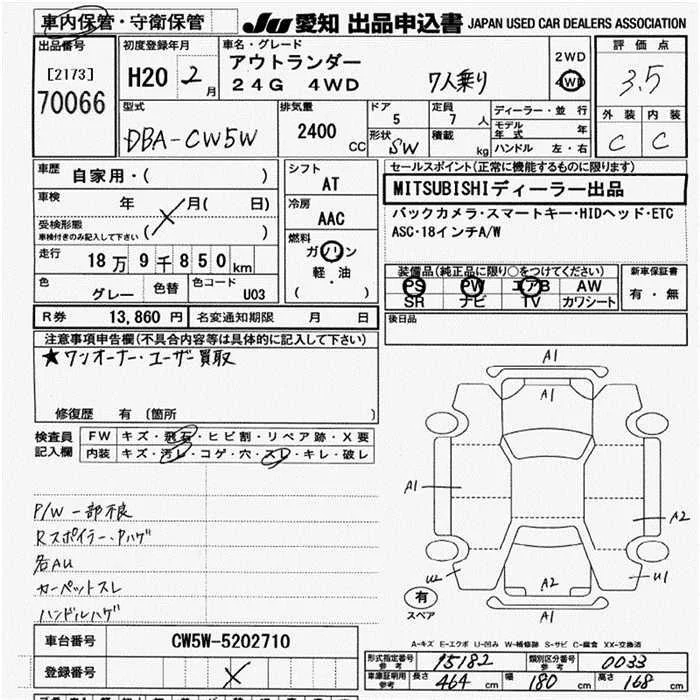 車内保管・守衛保管
JU 愛知 出品申込書 JAPAN USED CAR DEALERS ASSOCIATION
出品番号
[2173]
70066
初度登録年月
H20 2月
車名・グレード
アウトランダー
24G 4WD 7人乗り
2WD
4WD
評価点
3.5
外装 内装
C C
型式
DBA-CW5W
排気量
2400
CC
ドア
5
定員
7人
形状
SW
積載
kg
ディーラー・並行
モデル年式 年
ハンドル 左・右
車歴 自家用・( )
車検 年 月( 日)
受検形態
車検付きのみ記入して下さい ( )
走行 18万9千850km
色 グレー
色替
色コード U03
シフト
AT
冷房
AAC
燃料
ガソリン
軽・油
( )
セールスポイント(正常に機能するものに限ります)
MITSUBISHIディーラー出品
バックカメラ・スマートキー・HIDヘッド・ETC
ASC・18インチA/W
装備品(純正品に限り○をつけてください)
PS PW エアB AW
SR ナビ TV カワシート
新車保証書
有・無
R券 13,860円 名変通知期限 月 日
後日品
注意事項申告欄(不具合内容等は具体的に記入して下さい)
★ワンオーナー・ユーザー買取
修復歴 有 〔箇所 〕
検査員
記入欄
FW キズ・飛石・ヒビ割・リペア跡・X要
内装 キズ・汚レ・コゲ・穴・スレ・キレ・破レ
P/W一部不良
Rスポイラー・ハゲ
各AU
カーペットスレ
ハンドルハゲ
A1
A1
A1
A2
A2
W2
U1
A1
有
スペア
A-キズ E-エクボ U-凹み W-補修跡 S-サビ C-腐食 XX-交換済
車台番号 CW5W-5202710
登録番号
形式指定番号
参考
15182
類別区分番号
参考
0033
車庫証明用
参考
長さ 464 cm 幅 180 cm 高さ 168 cm